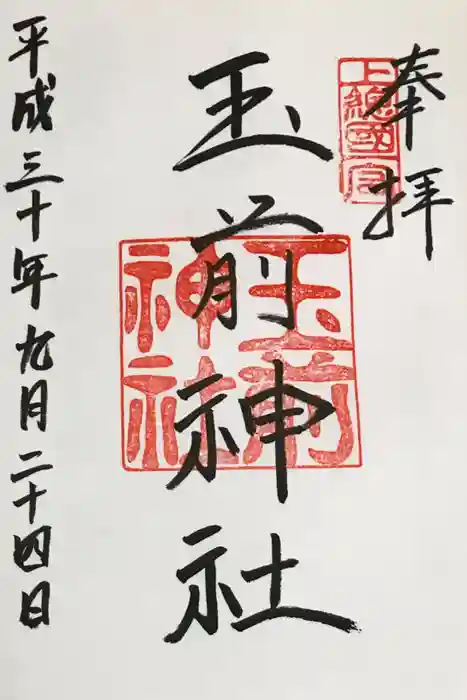 奉拝
上總國一宮
玉前神社
玉前神社
平成三十年九月二十四日